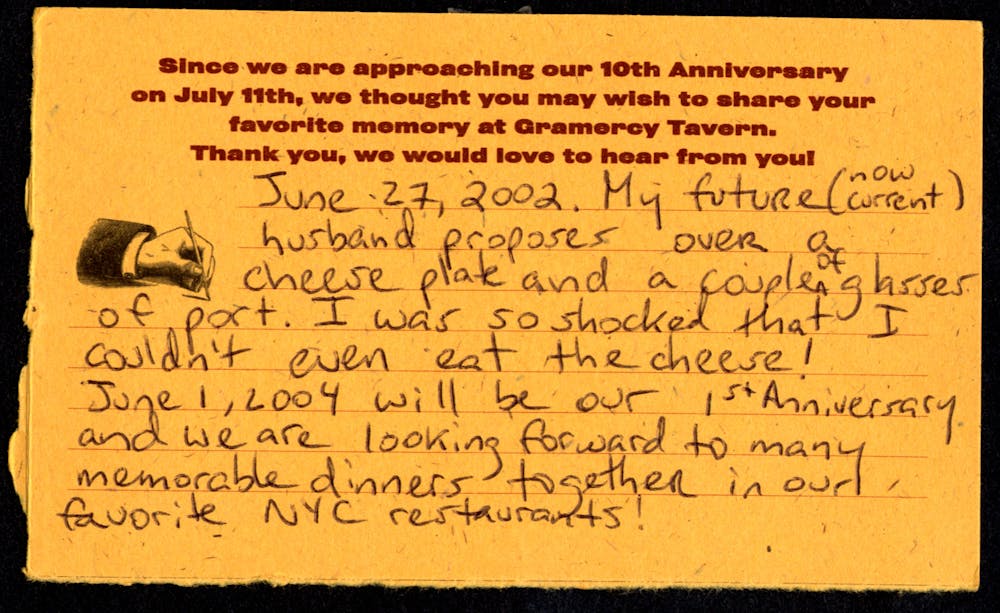 Since we are approaching our 10th Anniversary
on July 11th, we thought you may wish to share your
favorite memory at Gramercy Tavern.
Thank you, we would love to hear from you!
June 27, 2002. My future (now current)
husband proposes over a
cheese plate and a couple of glasses
of port. I was so shocked that I
couldn't even eat the cheese!
June 1, 2004 will be our 1st Anniversary
and we are looking forward to many
memorable dinners together in our
favorite NYC restaurants!